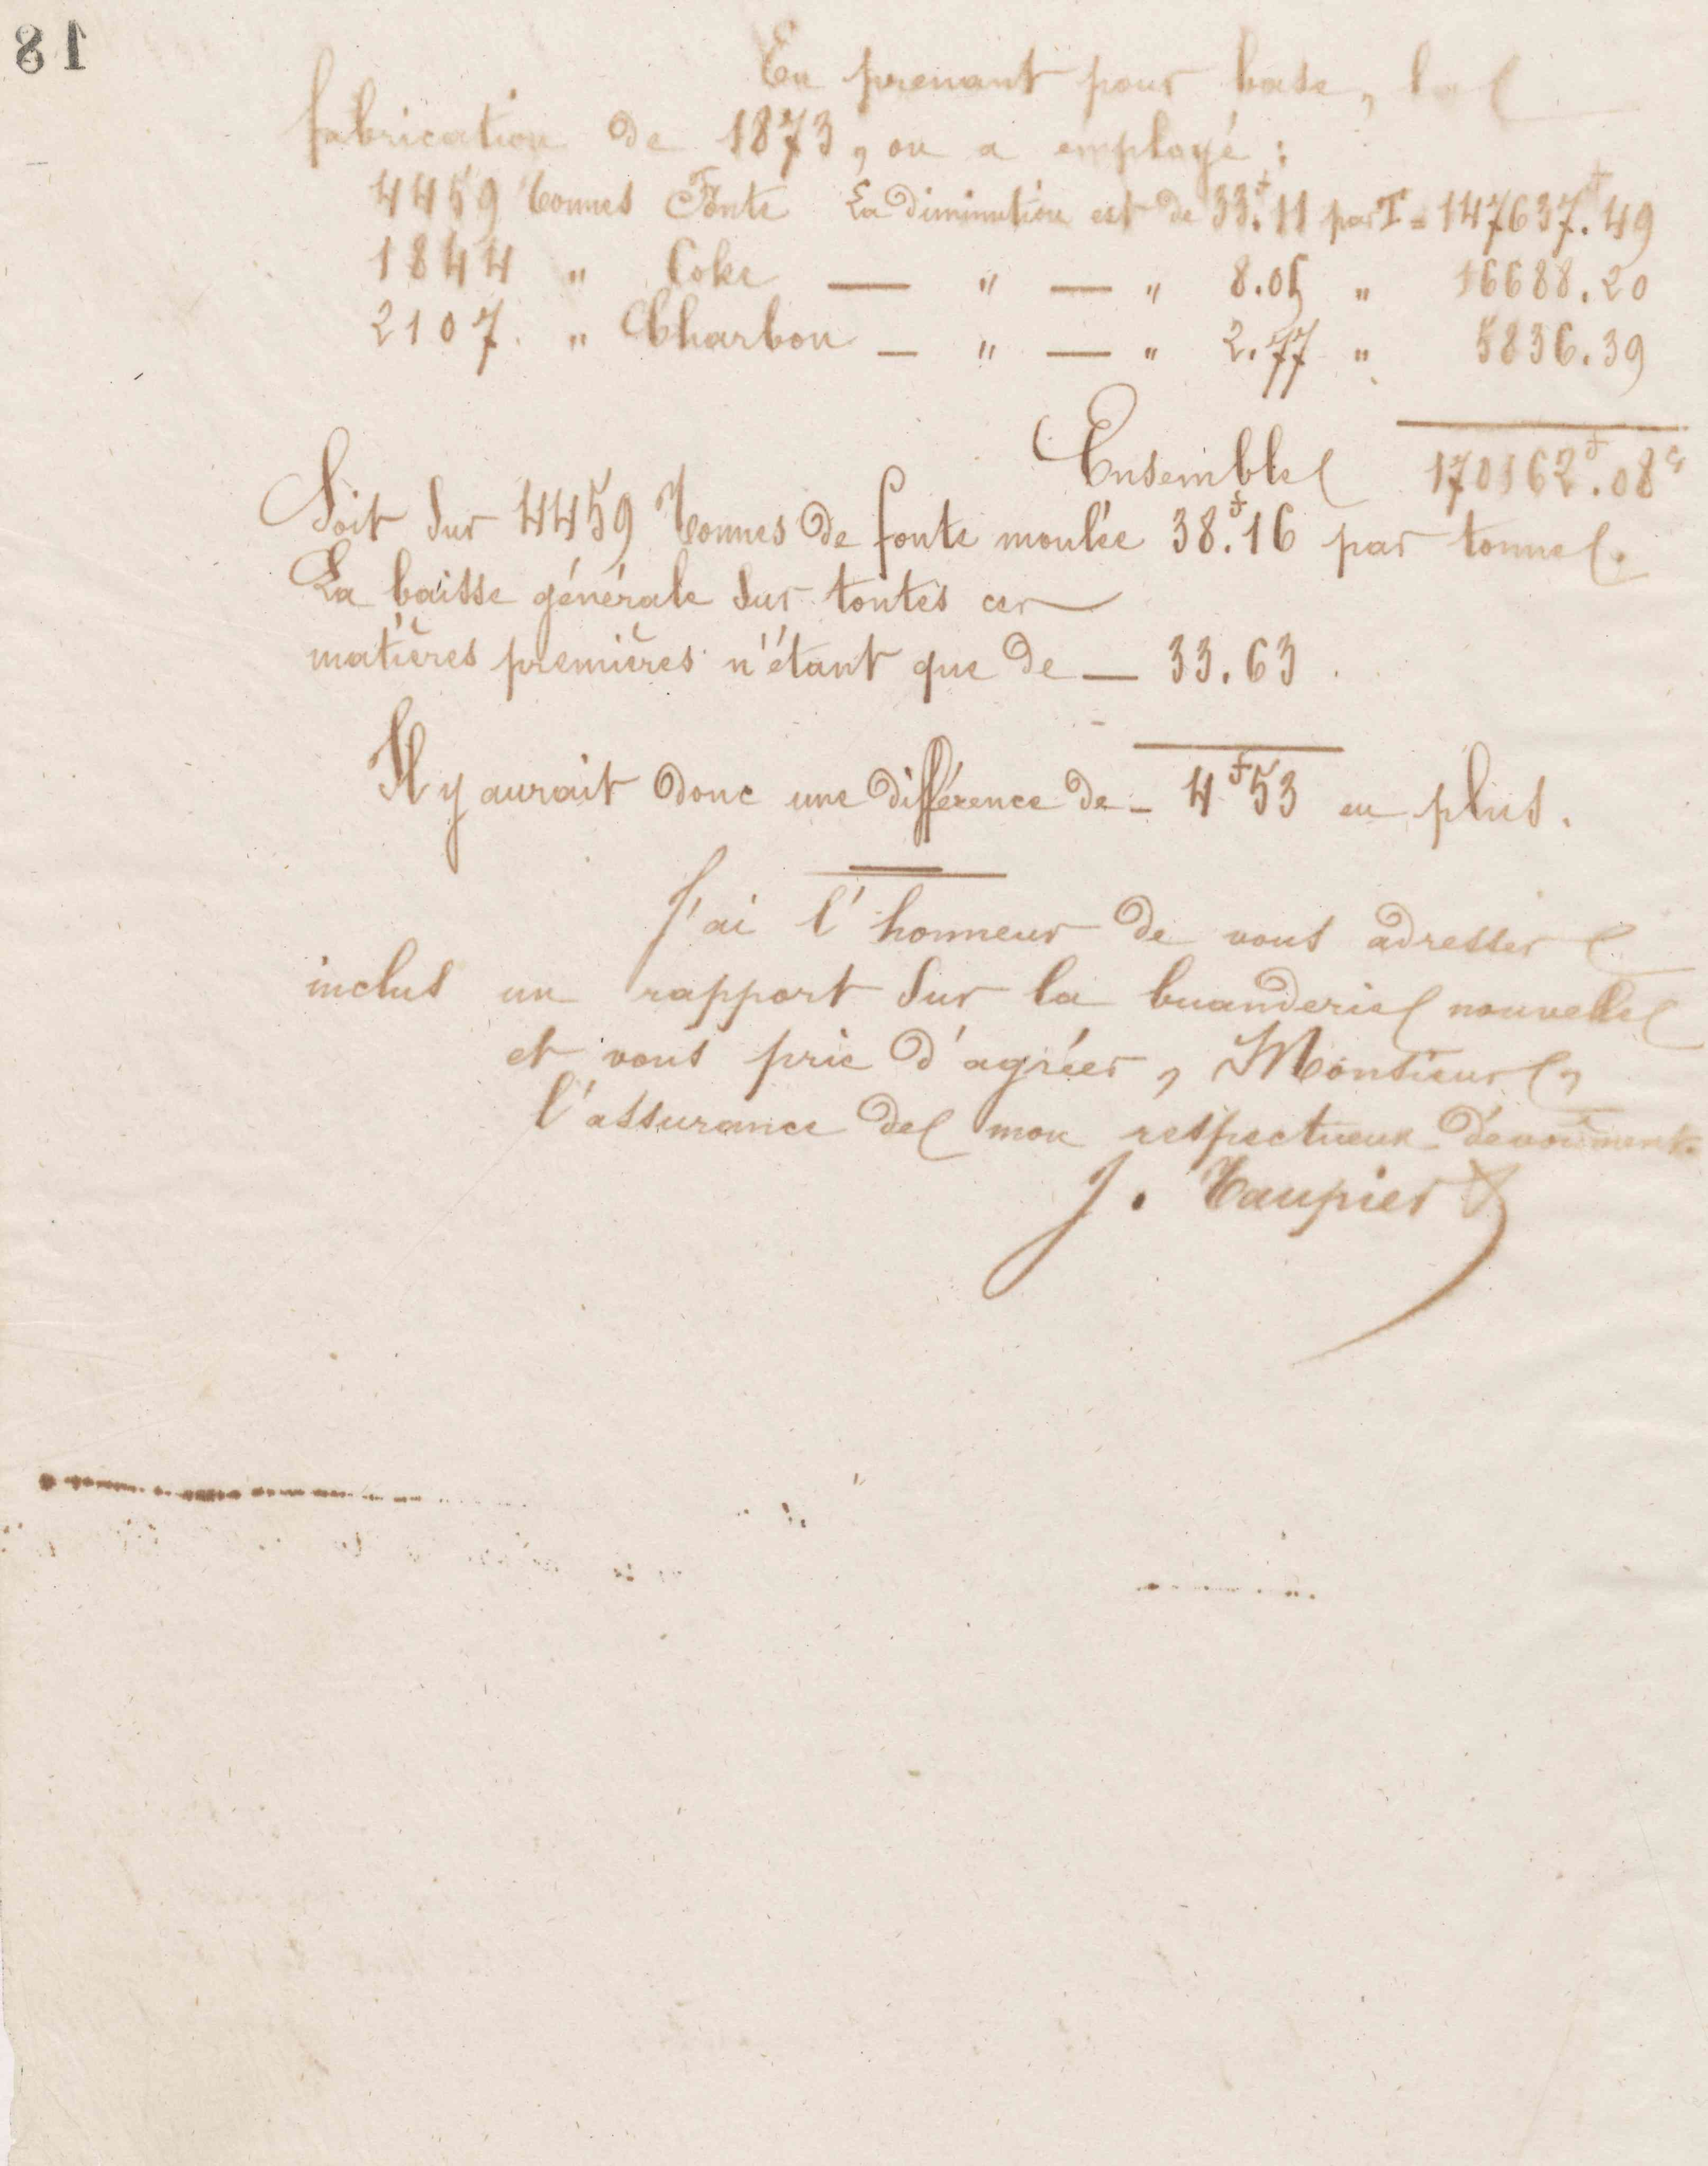 18
En prenant pour base, la
fabrication de 1873, on a employé :
4459 Tonnes Fonte La diminution est de 33.f11 par T = 147637.f49
1844 " Coke — " — " 8.05 " 16688.20
2107. " Charbon — " — " 2.77 " 5836.39
Ensemble 170162f.08c
Soit sur 4459 Tonnes de fonte moulée 38.f16 par tonne.
La baisse générale sur toutes ces
matières premières n'étant que de — 33.63.
Il y aurait donc une différence de — 4f53 en plus.
J'ai l'honneur de vous adresser
inclus un rapport sur la buanderie nouvelle
et vous prie d'agréer, Monsieur,
l'assurance de mon respectueux dévoûment.
J. Taupier